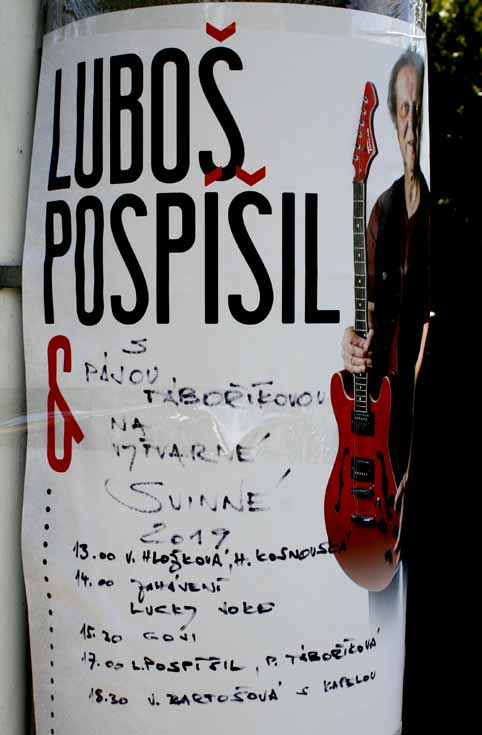 LUBOŠ
POSPÍŠIL
&
S
PÁJOU
TÁBOŘÍKOVOU
NA
VÝTVARNÉ
SVINNÉ
2019
13.00 V. HLOŽKOVÁ, H. KOSNOVSKÁ
14.00 ZAHÁJENÍ
LUCKY VOKE
15.30 GOŠI
17.00 L. POSPÍŠIL, P. TÁBOŘÍKOVÁ
18.30 V. BARTOŠOVÁ S KAPELOU